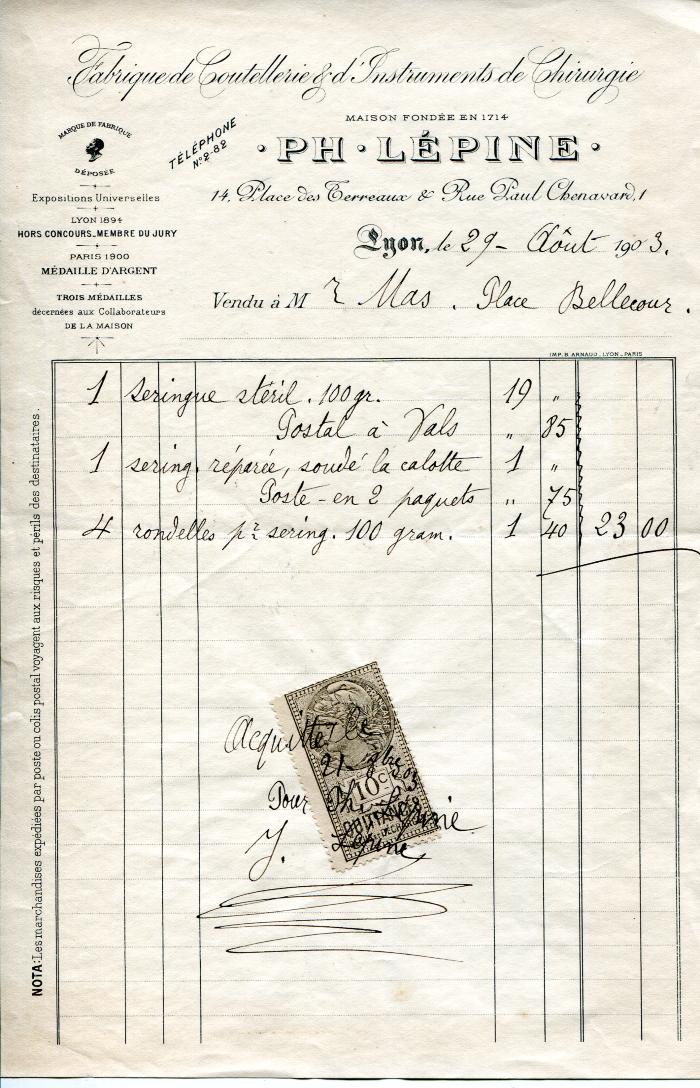 Fabrique de Coutellerie & d'Instruments de Chirurgie
MAISON FONDÉE EN 1714
MARQUE DE FABRIQUE
DÉPOSÉE
TÉLÉPHONE
Nº 2-82
· PH · LÉPINE ·
14, Place des Terreaux & Rue Paul Chenavard, 1
Expositions Universelles
LYON 1894
HORS CONCOURS_MEMBRE DU JURY
PARIS 1900
MÉDAILLE D'ARGENT
TROIS MÉDAILLES
décernées aux Collaborateurs
DE LA MAISON
Lyon, le 29 - Août 1903.
Vendu à M r Mas. Place Bellecour.
IMP. B. ARNAUD. LYON_PARIS
1 seringue stéril. 100 gr. 19 "
Postal à Vals " 85
1 sering. réparée, soudé la calotte 1 "
Poste - en 2 paquets " 75
4 rondelles pr sering. 100 gram. 1 40 23 00
NOTA: Les marchandises expédiées par poste ou colis postal voyagent aux risques et périls des destinataires.
Acquitté le
21
10c
Pour Ph.
QUITTANCES
Lépine